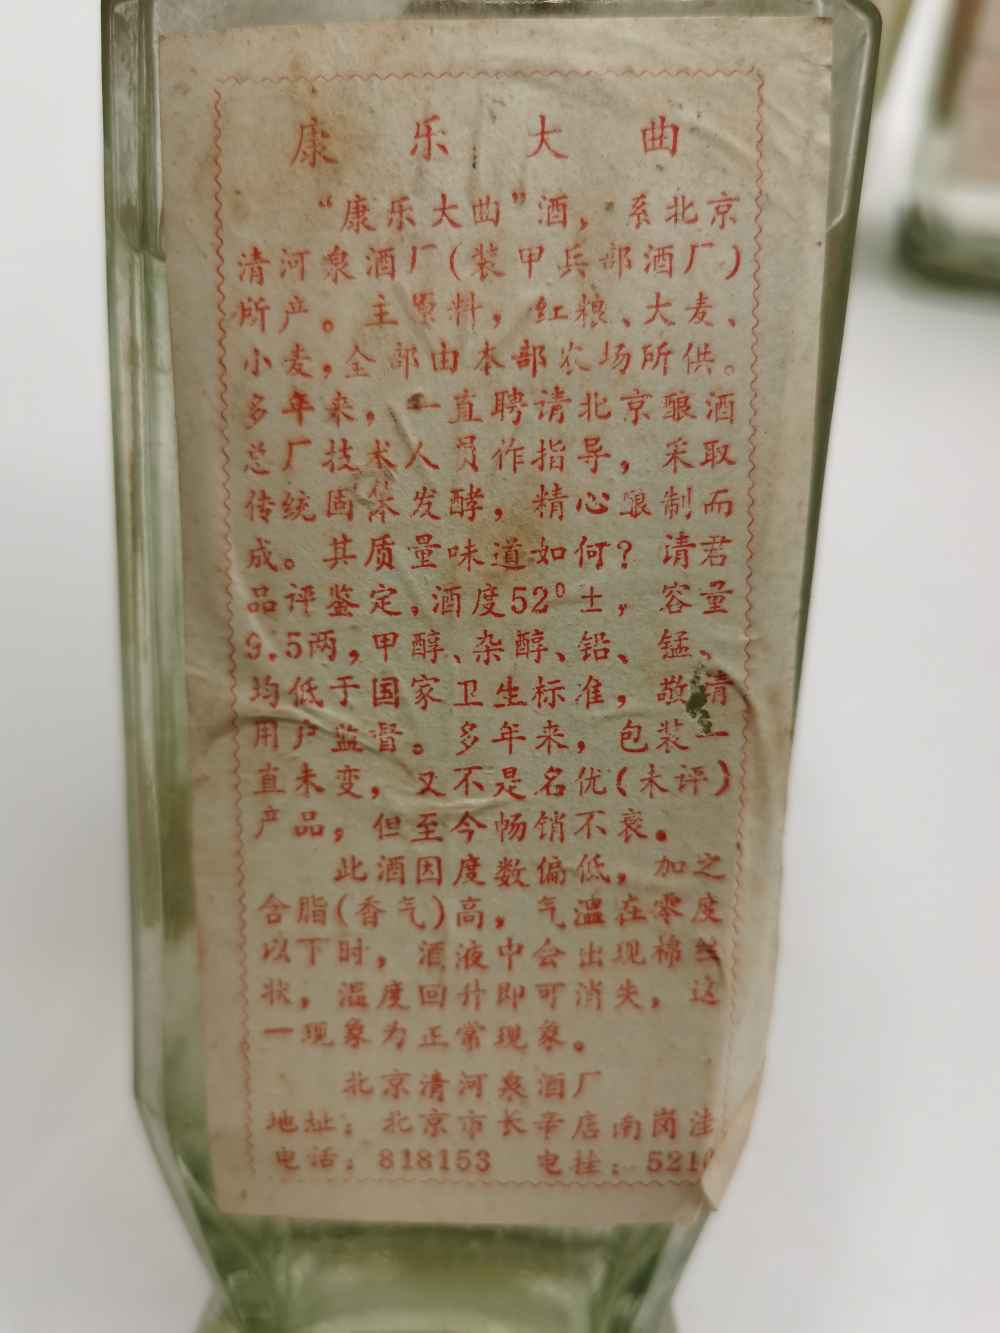 康乐大曲
“康乐大曲”酒，系北京
清河泉酒厂(装甲兵部酒厂)
所产。主原料，红粮、大麦、
小麦，全部由本部农场所供。
多年来，一直聘请北京酿酒
总厂技术人员作指导，采取
传统固体发酵，精心酿制而
成。其质量味道如何？请君
品评鉴定，酒度52°±，容量
9.5两，甲醇、杂醇、铅、锰、
均低于国家卫生标准，敬请
用户监督。多年来，包装一
直未变，又不是名优(未评)
产品，但至今畅销不衰。
此酒因度数偏低，加之
含脂(香气)高，气温在零度
以下时，酒液中会出现棉丝
状，温度回升即可消失，这
一现象为正常现象。
北京清河泉酒厂
地址：北京市长辛店南岗洼
电话：818153 电挂：521